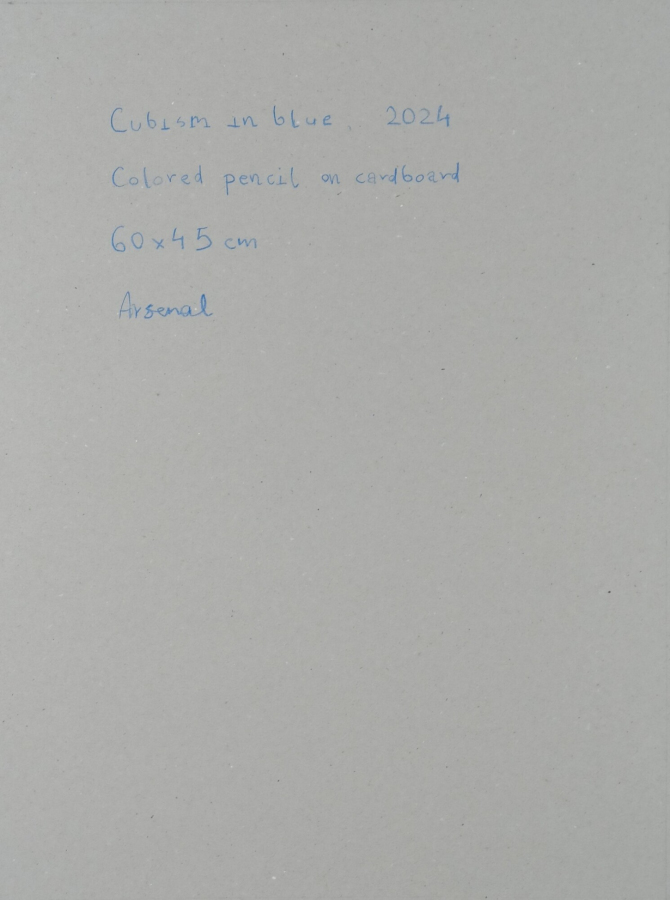 Cubism in blue 2024
Colored pencil on cardboard
60x45 cm
Arsenal